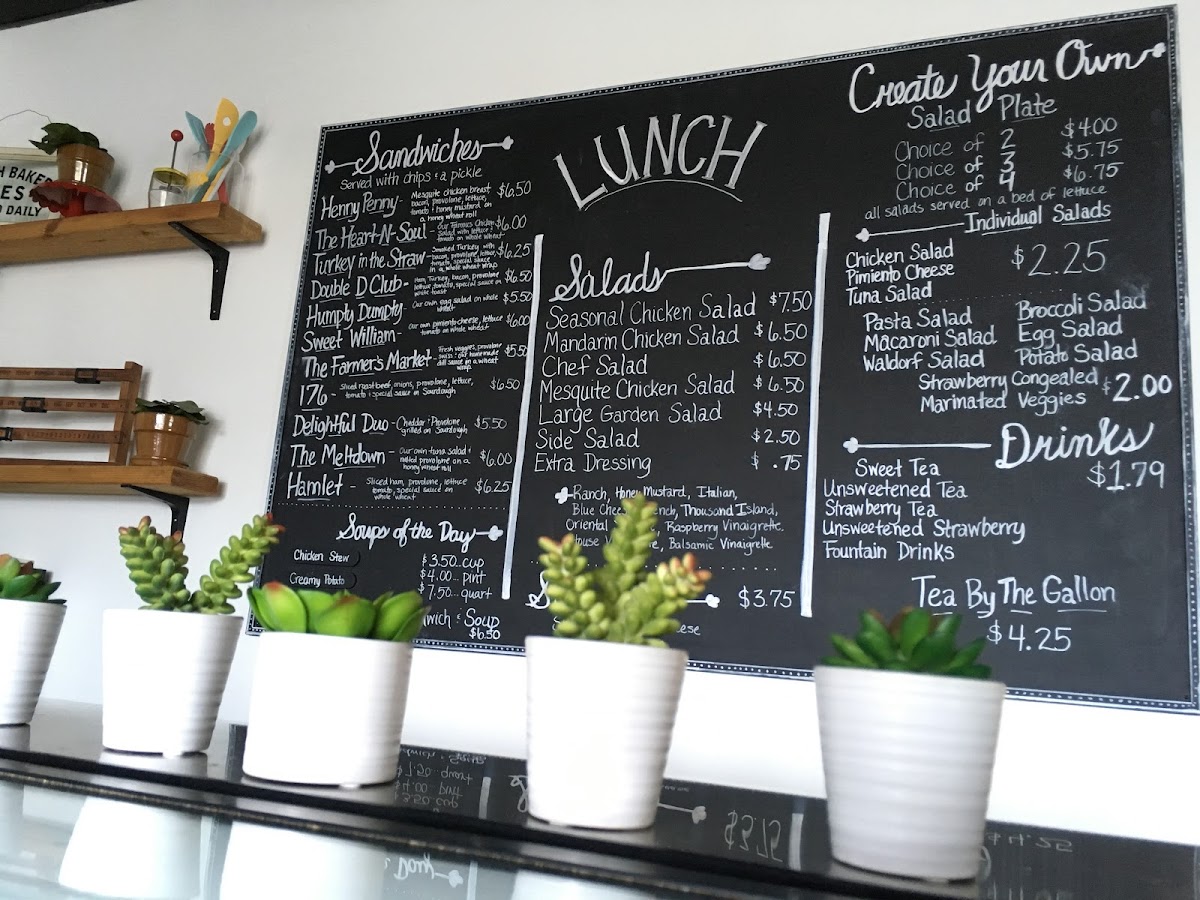 H BAKER
ES
D DAILY
LUNCH
Sandwiches
Served with chips & a pickle
Henny Penny - Mesquite chicken breast $6.50
bacon, provolone, lettuce,
tomato & honey mustard on
a honey wheat roll
The Heart-N-Soul - Our Famous Chicken $6.00
Salad with lettuce &
tomato on whole wheat
Turkey in the Straw - Smoked Turkey with $6.25
bacon, provolone, lettuce,
tomato, special sauce
in a whole wheat wrap
Double D Club - Ham, Turkey, bacon, provolone $6.50
lettuce, tomato, special sauce on
toast
Humpty Dumpty - Our own egg salad on whole $5.50
wheat
Sweet William - our own pimiento cheese, lettuce $6.00
tomato on whole wheat
The Farmer's Market - Fresh veggies, provolone $5.50
swiss & our homemade
dill sauce in a wheat
wrap.
176 - sliced roast beef, onions, provolone, lettuce, $6.50
tomato & special sauce on Sourdough
Delightful Duo - Cheddar & Provolone $5.50
grilled on Sourdough
The Meltdown - Our own tuna salad & $6.00
melted provolone on a
honey wheat roll
Hamlet - Sliced ham, provolone, lettuce $6.25
tomato, special sauce on
whole wheat
Soups of the Day
Chicken Stew
Creamy Potato
$3.50... cup
$4.00... pint
$7.50... quart
wich & Soup
$6.50
Salads
Seasonal Chicken Salad $7.50
Mandarin Chicken Salad $6.50
Chef Salad $6.50
Mesquite Chicken Salad $6.50
Large Garden Salad $4.50
Side Salad $2.50
Extra Dressing $ .75
Ranch, Honey Mustard, Italian,
Blue Chee nch, Thousand Island,
Oriental Raspberry Vinaigrette
House Balsamic Vinaigrette
$3.75
ese
Create Your Own
Salad Plate
Choice of 2 $4.00
Choice of 3 $5.75
Choice of 4 $6.75
all salads served on a bed of lettuce
Individual Salads
Chicken Salad
Pimiento Cheese
Tuna Salad
$2.25
Pasta Salad Broccoli Salad
Macaroni Salad Egg Salad
Waldorf Salad Potato Salad
Strawberry Congealed
Marinated Veggies
$2.00
Drinks
$1.79
Sweet Tea
Unsweetened Tea
Strawberry Tea
Unsweetened Strawberry
Fountain Drinks
Tea By The Gallon
$4.25